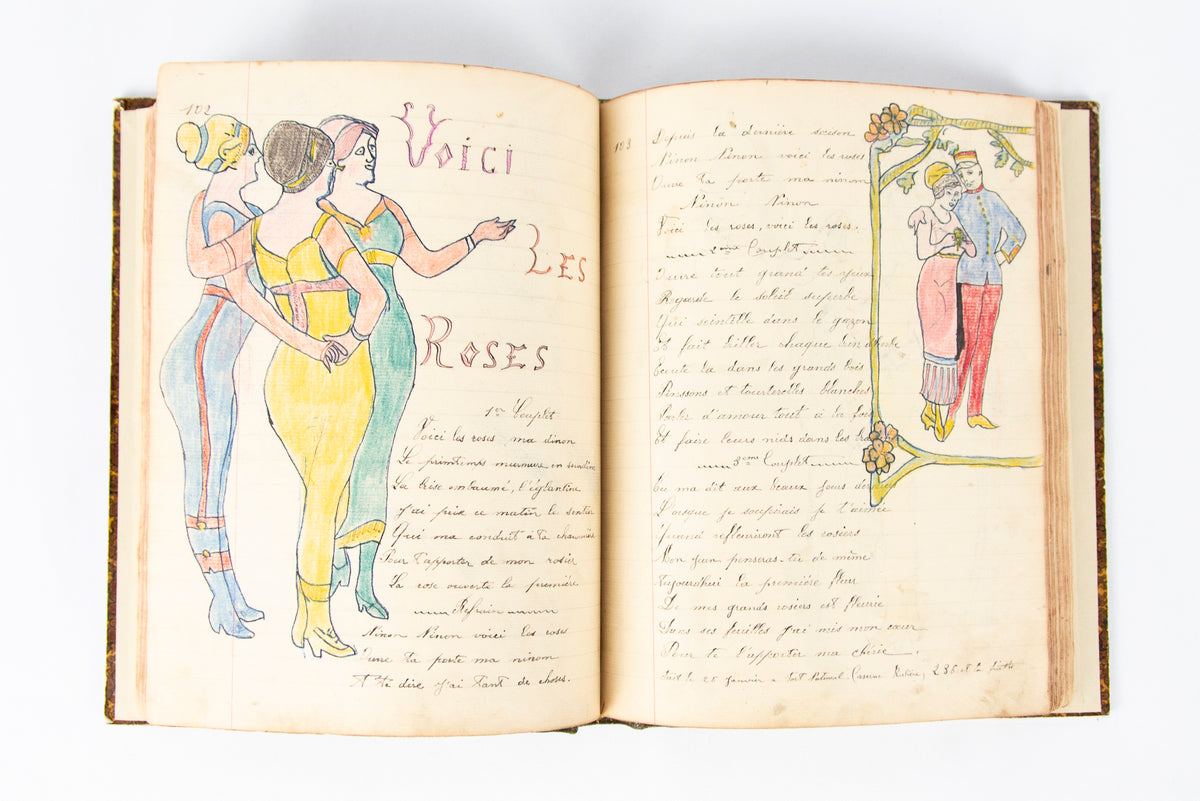 102
Voici
Les
Roses
1er Couplet
Voici les roses ma dinon
Le primtemps murmure en sourdine
La brise embaumé, l'églantine
J'ai prix ce matin le sentier
Qui ma conduit a ta chaumière
Pour t'apporter de mon rosier
La rose ouverte la première
Refrain
Ninon Ninon voici les roses
Ouvre ta porte ma ninon
A te dire j'ai tant de choses.
103
Depuis la dernière saison
Ninon Ninon voici les roses
Ouvre ta porte ma ninon
Ninon Ninon
Voici les roses, voici les roses.
2eme Couplet
Ouvre tout grand tes yeux
Regarde le soleil superbe
Qui scintille dans le gazon
Et fait briller chaque brin d'herbe
Ecoute la dans les grands bois
Pinssons et tourterelles blanches
Parler d'amour tout à la fois
Et faire leurs nids dans les
3eme Couplet
Tu ma dit aux beaux jours
Lorsque je soupirais je t'aime
Quand refleuriront les rosiers
Mon Jean penseras-tu de même
Aujourd'hui la première fleur
De mes grands rosiers est fleurie
Dans ses feuilles j'ai mis mon cœur
Pour te l'apporter ma chérie.
Fait le 25 Janvier a Fort National. Caserne